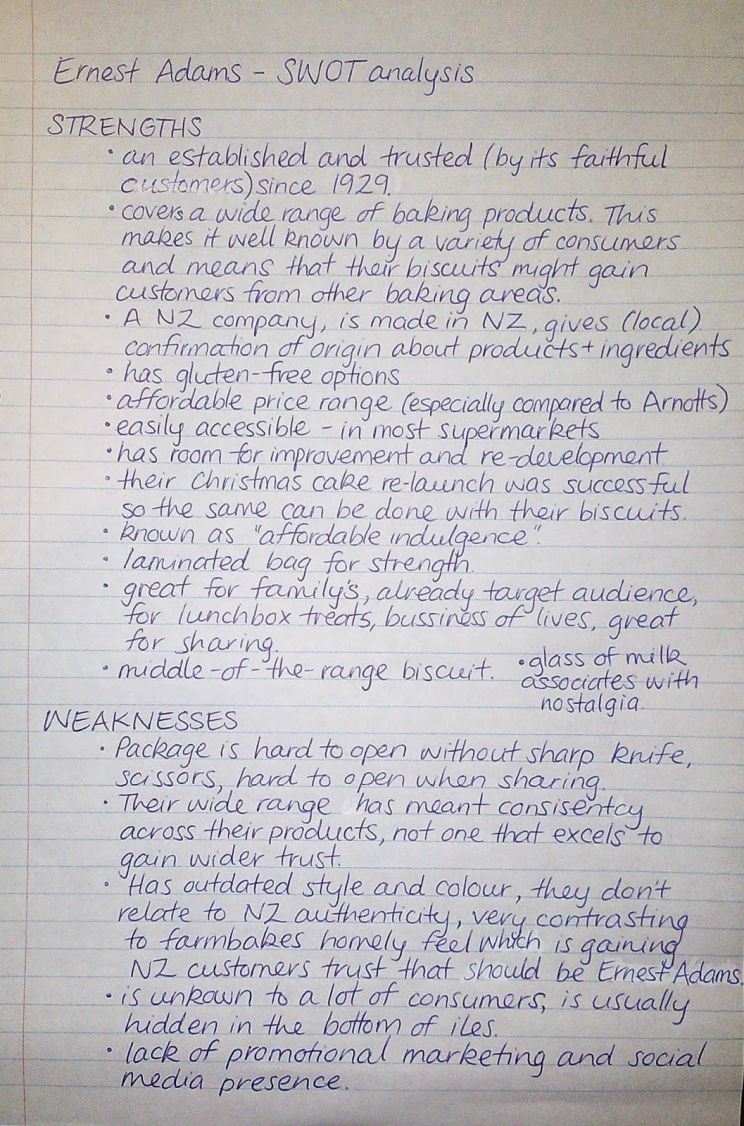 Ernest Adams - SWOT analysis
STRENGTHS
• an established and trusted (by its faithful
customers) since 1929.
• covers a wide range of baking products. This
makes it well known by a variety of consumers
and means that their biscuits might gain
customers from other baking areas.
• A NZ company, is made in NZ, gives (local)
confirmation of origin about products + ingredients
• has gluten-free options
• affordable price range (especially compared to Arnotts)
• easily accessible - in most supermarkets
• has room for improvement and re-development
• their Christmas cake re-launch was successful
so the same can be done with their biscuits.
• known as "affordable indulgence".
• laminated bag for strength.
• great for family's, already target audience,
for lunchbox treats, bussiness of lives, great
for sharing.
• middle-of-the-range biscuit.
• glass of milk
associates with
nostalgia.
WEAKNESSES
• Package is hard to open without sharp knife,
scissors, hard to open when sharing.
• Their wide range has meant consisentcy
across their products, not one that excels to
gain wider trust.
• Has outdated style and colour, they don't
relate to NZ authenticity, very contrasting
to farmbakes homely feel which is gaining
NZ customers trust that should be Ernest Adams.
• is unkown to a lot of consumers, is usually
hidden in the bottom of iles.
• lack of promotional marketing and social
media presence.